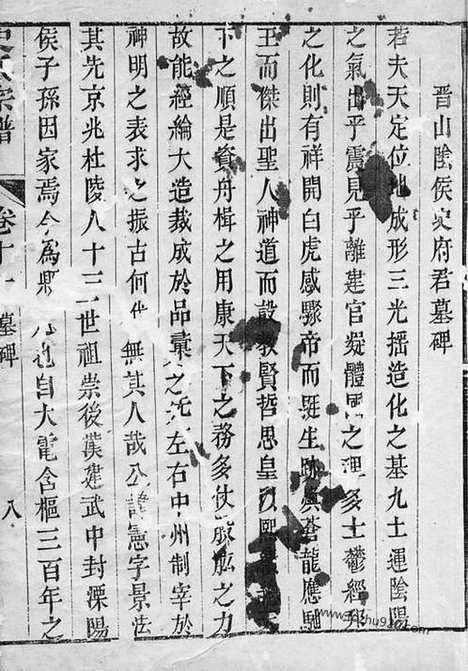 晋山陰侯史府君墓碑
若夫天定位地成形三光揺造化之基九土運陰陽
之氣出乎震見乎離建官凝體國之理多士鬱經邦
之化則有祥開白虎感驟帝而挺生跡興蒼龍應馳
王而傑出聖人神道而設教賢哲思皇以熙
下之順是資舟楫之用康天下之務多仗股肱之力
故能經綸大造裁成於品彙之託左右中州制宰於
神明之表求之振古何代無其人哉公諱憲字景法
其先京兆杜陵人十三世祖崇後漢建武中封溧陽
侯子孫因家焉今為 也自大電含樞三百年之
史氏宗譜
卷十一 墓碑
八